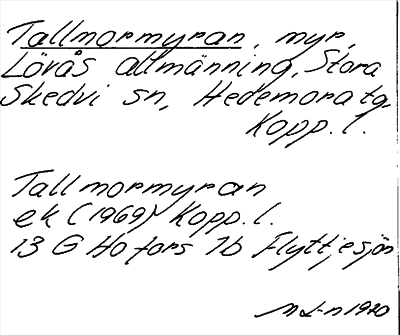 Tallmormyran, myr,
Lövås allmänning, Stora
Skedvi sn, Hedemora tg.
Kopp. l.
Tallmormyran
ek (1969) Kopp. l.
13 G Hofors 7b Flyttjesjön